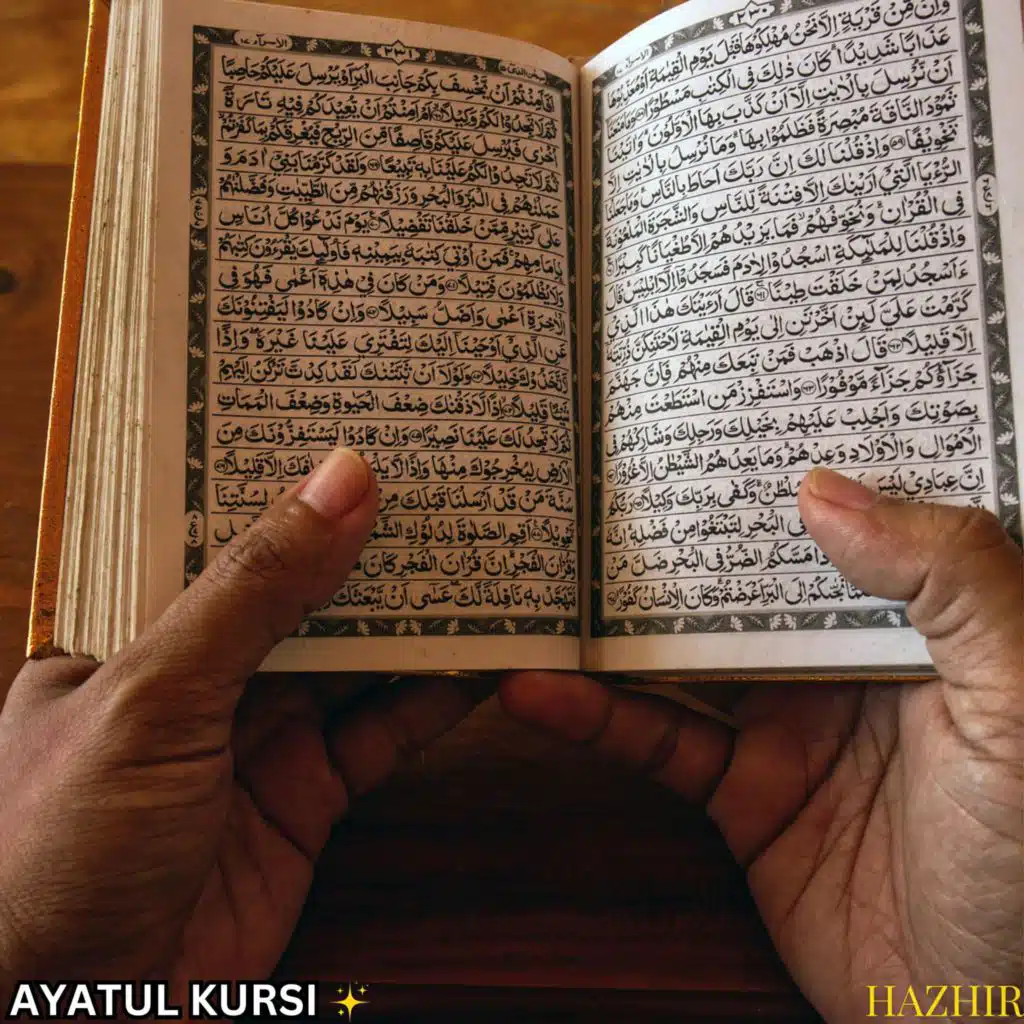 ٢٣٠
وَاِنْ مِّنْ قَرْيَةٍ اِلَّا نَحْنُ مُهْلِكُوْهَا قَبْلَ يَوْمِ الْقِيٰمَةِ اَوْ مُعَذِّبُوْهَا
عَذَابًا شَدِيْدًا ؕ كَانَ ذٰلِكَ فِي الْكِتٰبِ مَسْطُوْرًا ﴿٥٨﴾ وَمَا مَنَعَنَا
اَنْ نُّرْسِلَ بِالْاٰيٰتِ اِلَّا اَنْ كَذَّبَ بِهَا الْاَوَّلُوْنَ ؕ وَاٰتَيْنَا
ثَمُوْدَ النَّاقَةَ مُبْصِرَةً فَظَلَمُوْا بِهَا ؕ وَمَا نُرْسِلُ بِالْاٰيٰتِ اِلَّا
تَخْوِيْفًا ﴿٥٩﴾ وَاِذْ قُلْنَا لَكَ اِنَّ رَبَّكَ اَحَاطَ بِالنَّاسِ ؕ وَمَا جَعَلْنَا
الرُّءْيَا الَّتِيْۤ اَرَيْنٰكَ اِلَّا فِتْنَةً لِّلنَّاسِ وَالشَّجَرَةَ الْمَلْعُوْنَةَ
فِي الْقُرْاٰنِ ؕ وَنُخَوِّفُهُمْ ۙ فَمَا يَزِيْدُهُمْ اِلَّا طُغْيَانًا كَبِيْرًا ﴿٦٠﴾
وَاِذْ قُلْنَا لِلْمَلٰٓئِكَةِ اسْجُدُوْا لِاٰدَمَ فَسَجَدُوْۤا اِلَّاۤ اِبْلِيْسَ ؕ قَالَ
ءَاَسْجُدُ لِمَنْ خَلَقْتَ طِيْنًا ﴿٦١﴾ قَالَ اَرَءَيْتَكَ هٰذَا الَّذِيْ
كَرَّمْتَ عَلَيَّ ؗ لَئِنْ اَخَّرْتَنِ اِلٰى يَوْمِ الْقِيٰمَةِ لَاَحْتَنِكَنَّ ذُرِّيَّتَهٗۤ
اِلَّا قَلِيْلًا ﴿٦٢﴾ قَالَ اذْهَبْ فَمَنْ تَبِعَكَ مِنْهُمْ فَاِنَّ جَهَنَّمَ
جَزَآؤُكُمْ جَزَآءً مَّوْفُوْرًا ﴿٦٣﴾ وَاسْتَفْزِزْ مَنِ اسْتَطَعْتَ مِنْهُمْ
بِصَوْتِكَ وَاَجْلِبْ عَلَيْهِمْ بِخَيْلِكَ وَرَجِلِكَ وَشَارِكْهُمْ فِي
الْاَمْوَالِ وَالْاَوْلَادِ وَعِدْهُمْ ؕ وَمَا يَعِدُهُمُ الشَّيْطٰنُ اِلَّا غُرُوْرًا ﴿٦٤﴾
اِنَّ عِبَادِيْ لَيْسَ سُلْطٰنٌ ؕ وَكَفٰى بِرَبِّكَ وَكِيْلًا ﴿٦٥﴾ رَبُّكُمُ
فِي الْبَحْرِ لِتَبْتَغُوْا مِنْ فَضْلِهٖ ؕ اِنَّهٗ
مَسَّكُمُ الضُّرُّ فِي الْبَحْرِ ضَلَّ مَنْ
نَجّٰىكُمْ اِلَى الْبَرِّ اَعْرَضْتُمْ ؕ وَكَانَ الْاِنْسَانُ كَفُوْرًا ﴿٦٧﴾
٢٣١
الاسرآء ١٧
اَفَاَمِنْتُمْ اَنْ يَّخْسِفَ بِكُمْ جَانِبَ الْبَرِّ اَوْ يُرْسِلَ عَلَيْكُمْ حَاصِبًا
ثُمَّ لَا تَجِدُوْا لَكُمْ وَكِيْلًا ﴿٦٨﴾ اَمْ اَمِنْتُمْ اَنْ يُّعِيْدَكُمْ فِيْهِ تَارَةً
اُخْرٰى فَيُرْسِلَ عَلَيْكُمْ قَاصِفًا مِّنَ الرِّيْحِ فَيُغْرِقَكُمْ بِمَا كَفَرْتُمْ ۙ
ثُمَّ لَا تَجِدُوْا لَكُمْ عَلَيْنَا بِهٖ تَبِيْعًا ﴿٦٩﴾ وَلَقَدْ كَرَّمْنَا بَنِيْۤ اٰدَمَ وَ
حَمَلْنٰهُمْ فِي الْبَرِّ وَالْبَحْرِ وَرَزَقْنٰهُمْ مِّنَ الطَّيِّبٰتِ وَفَضَّلْنٰهُمْ
عَلٰى كَثِيْرٍ مِّمَّنْ خَلَقْنَا تَفْضِيْلًا ﴿٧٠﴾ يَوْمَ نَدْعُوْا كُلَّ اُنَاسٍۭ
بِاِمَامِهِمْ ۚ فَمَنْ اُوْتِيَ كِتٰبَهٗ بِيَمِيْنِهٖ فَاُولٰٓئِكَ يَقْرَءُوْنَ كِتٰبَهُمْ
وَلَا يُظْلَمُوْنَ فَتِيْلًا ﴿٧١﴾ وَمَنْ كَانَ فِيْ هٰذِهٖۤ اَعْمٰى فَهُوَ فِي
الْاٰخِرَةِ اَعْمٰى وَاَضَلُّ سَبِيْلًا ﴿٧٢﴾ وَاِنْ كَادُوْا لَيَفْتِنُوْنَكَ
عَنِ الَّذِيْۤ اَوْحَيْنَاۤ اِلَيْكَ لِتَفْتَرِيَ عَلَيْنَا غَيْرَهٗ ۖ وَاِذًا
لَّاتَّخَذُوْكَ خَلِيْلًا ﴿٧٣﴾ وَلَوْلَاۤ اَنْ ثَبَّتْنٰكَ لَقَدْ كِدْتَّ تَرْكَنُ اِلَيْهِمْ
شَيْئًا قَلِيْلًا ﴿٧٤﴾ اِذًا لَّاَذَقْنٰكَ ضِعْفَ الْحَيٰوةِ وَضِعْفَ الْمَمَاتِ
ثُمَّ لَا تَجِدُ لَكَ عَلَيْنَا نَصِيْرًا ﴿٧٥﴾ وَاِنْ كَادُوْا لَيَسْتَفِزُّوْنَكَ مِنَ
الْاَرْضِ لِيُخْرِجُوْكَ مِنْهَا وَاِذًا لَّا اِلَّا قَلِيْلًا ﴿٧٦﴾
سُنَّةَ مَنْ قَدْ اَرْسَلْنَا قَبْلَكَ مِنْ لِسُنَّتِنَا
تَحْوِيْلًا ﴿٧٧﴾ اَقِمِ الصَّلٰوةَ لِدُلُوْكِ
وَقُرْاٰنَ الْفَجْرِ ؕ اِنَّ قُرْاٰنَ الْفَجْرِ كَانَ
فَتَهَجَّدْ بِهٖ نَافِلَةً لَّكَ ۖ عَسٰۤى اَنْ يَّبْعَثَكَ
AYATUL KURSI ✨
HAZHIR